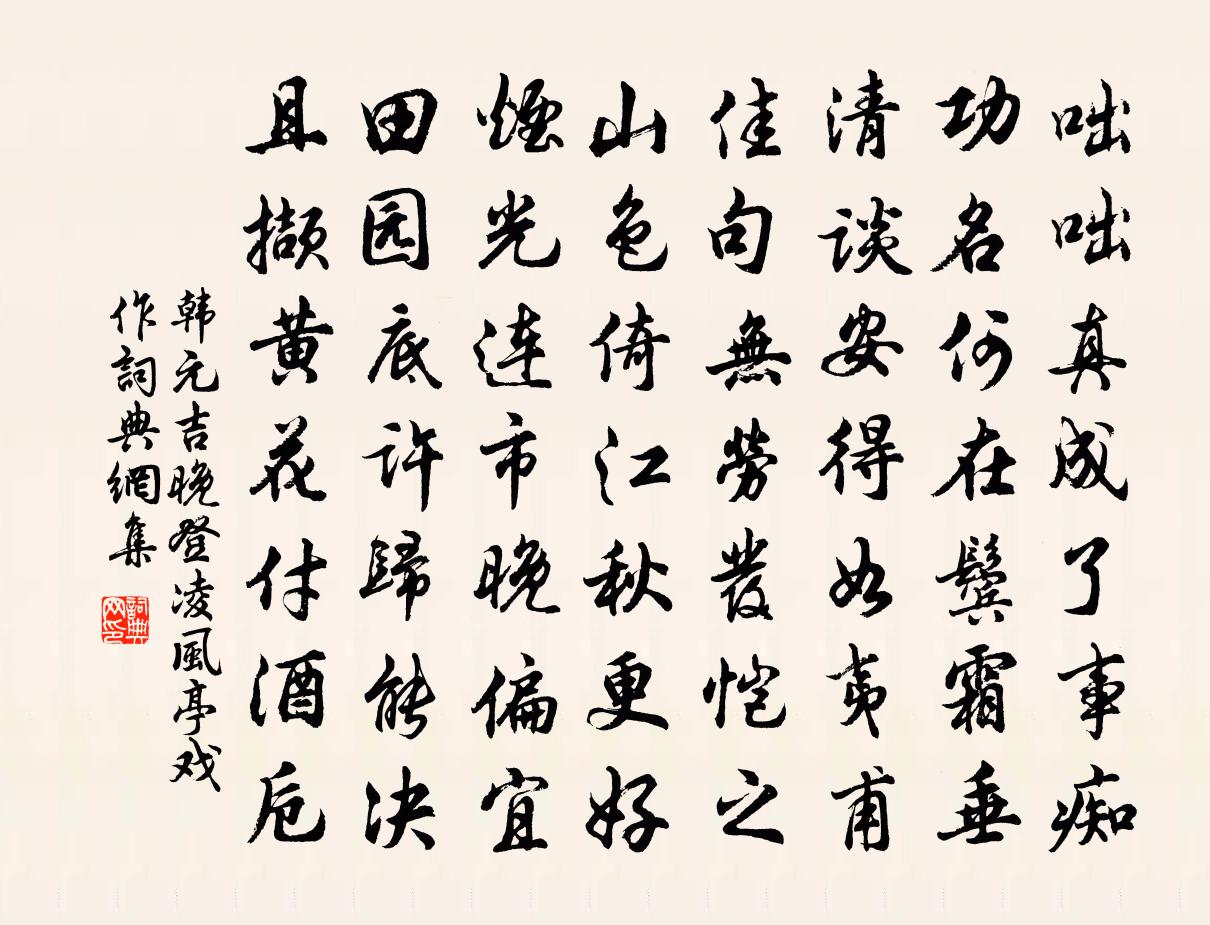 咄咄真成了事痴
功名何在鬓霜垂
清谈安得如夷甫
佳句無勞發恺之
山色倚江秋更好
煙光連市晚偏宜
田园底许歸能决
且撷黄花付酒卮
韩元吉晚登凌風亭戏
作詞典網集
詞典
网印